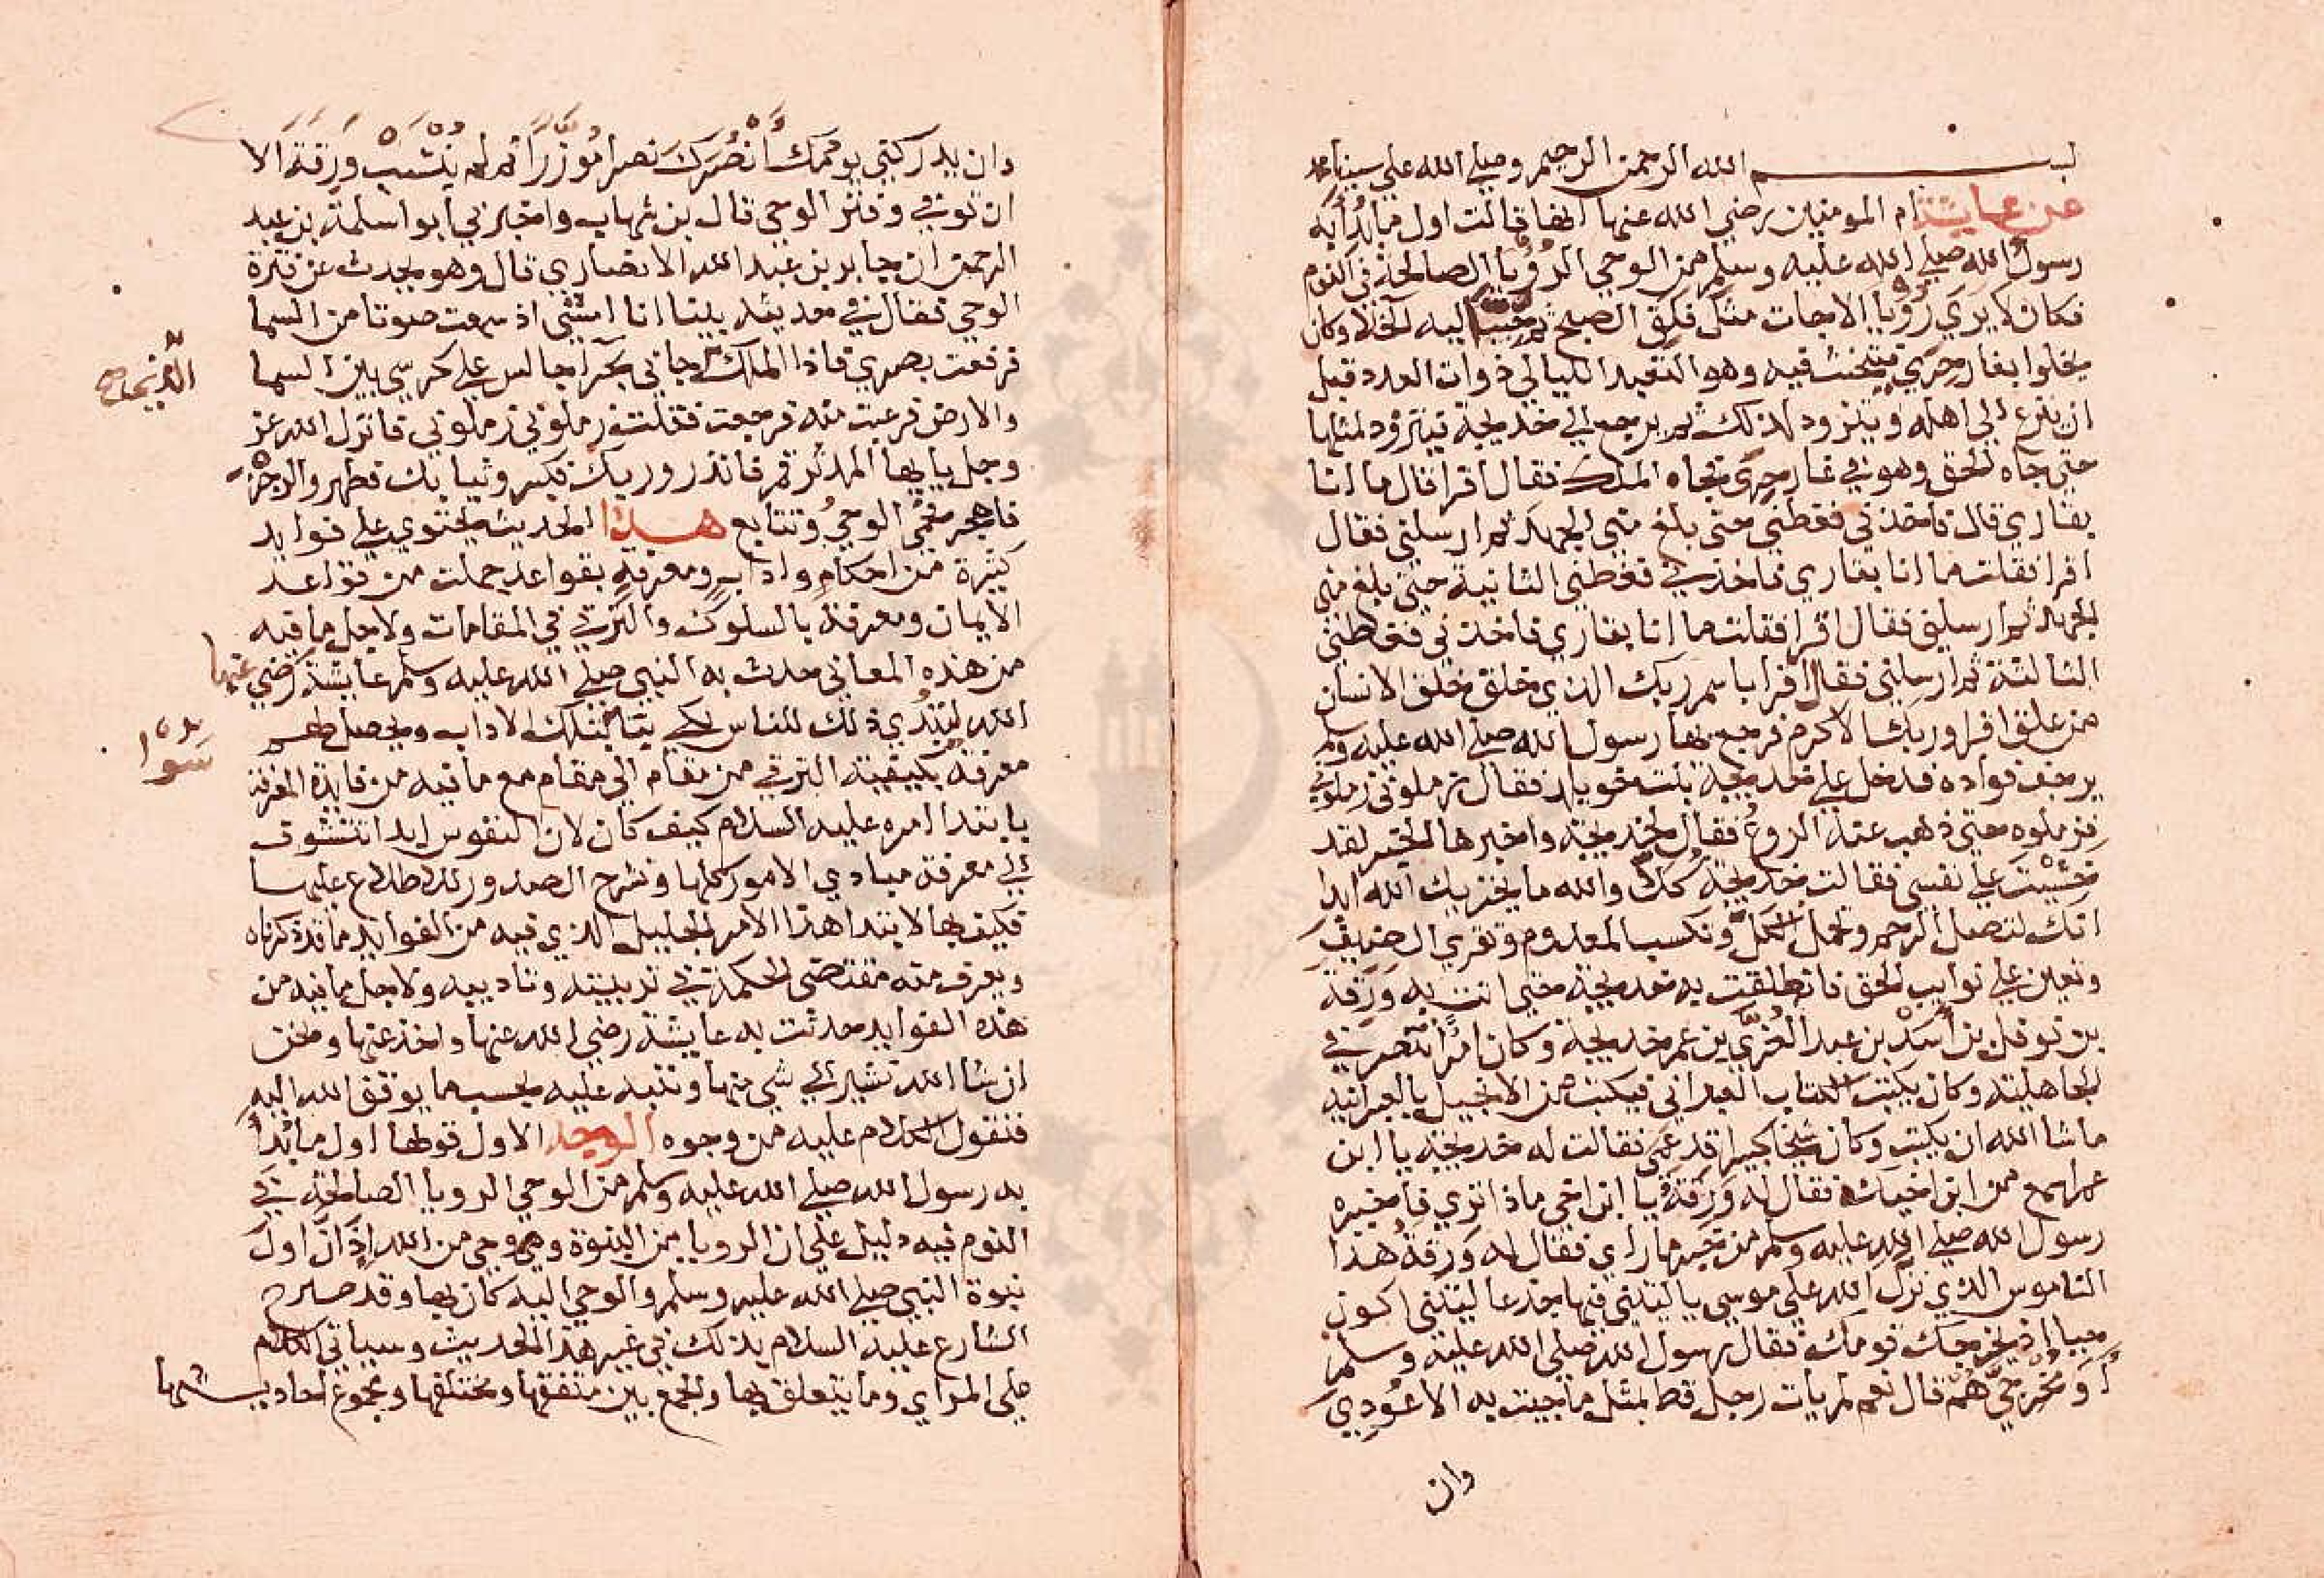 بسم الله الرحمن الرحيم وصلى الله على سيدنا محمد
عن عايشة ام المومنين رضي الله عنها انها قالت اول ما بُدأ به
رسول الله صلى الله عليه وسلم من الوحي الرُؤيا الصالحة في النوم
فكان لا يرى رُؤيا الا جات مثل فلق الصبح ثم حبب اليه الخلا وكان
يخلوا بغار حرى فيتحنث فيه وهو التعبد الليالي ذوات العدد قبل
ان ينزع الى اهله ويتزود لذلك ثم يرجع الى خديجة فيتزود لمثلها
حتى جاه الحق وهو في غار حرى فجاه الملك فقال اقرا قال ما انا
بقاري قال فاخذني فغطني حتى بلغ مني الجهد ثم ارسلني فقال
اقرا فقلت ما انا بقاري فاخذني فغطني الثانية حتى بلغ مني
الجهد ثم ارسلني فقال اقرا فقلت ما انا بقاري فاخذني فغطني
الثالثة ثم ارسلني فقال اقرا باسم ربك الذي خلق خلق الانسان
من علق اقرا وربك الاكرم فرجع بها رسول الله صلى الله عليه وسلم
يرجف فواده فدخل على خديجة بنت خويلد فقال زملوني زملوني
فزملوه حتى ذهب عنه الروع فقال لخديجة واخبرها الخبر لقد
خشيت على نفسي فقالت خديجة كلا والله ما يخزيك الله ابدا
انك لتصل الرحم وتحمل الكل وتكسب المعدوم وتقري الضيف
وتعين على نوايب الحق فانطلقت به خديجة حتى اتت به ورقة
بن نوفل بن اسد بن عبد العزى بن عم خديجة وكان امرأ تنصر في
الجاهلية وكان يكتب الكتاب العبراني فيكتب من الانجيل بالعبرانية
ما شا الله ان يكتب وكان شيخا كبيرا قد عمى فقالت له خديجة يا ابن
عم اسمع من ابن اخيك فقال له ورقة يا ابن اخي ماذا ترى فاخبره
رسول الله صلى الله عليه وسلم من خبر ما راى فقال له ورقة هذا
الناموس الذي نزل الله على موسى يا ليتني فيها جذعا ليتني اكون
حيا اذ يخرجك قومك فقال رسول الله صلى الله عليه وسلم
أوَ مُخرِجيَّ هُم قال نعم لم يات رجل قط بمثل ما جيت به الا عودي
وان
وان يدركني يومك أنصُرك نصرا مُوزَّراً ثم لم ينشب ورقة الا
ان توفي وفتر الوحي قال بن شهاب واخبرني ابو اسلمة بن عبد
الرحمن ان جابر بن عبد الله الانصاري قال وهو يحدث عن فترة
الوحي فقال في حديثه بينا انا امشي اذ سمعت صوتا من السما
فرفعت بصري فاذا الملك جاني بحرا جالس على كرسي بين السما
والارض فرعبت منه فرجعت فقلت زملوني زملوني فانزل الله عز
وجل يايها المدثر قم فانذر وربك فكبر وثيابك فطهر والرجز
فاهجر فحمى الوحيُ وتتابع هذا الحديث يحتوي على فوايد
كثيرة من احكام واداب ومعرفة بقواعد جملت من قواعد
الايمان ومعرفة بالسلوك والترقي في المقامات ولاجل ما فيه
من هذه المعاني حدث به النبي صلى الله عليه وسلم عايشة رضي عنها
الله لتبدي ذلك للناس لكي بتلك الاداب ويحصل لهم
معرفة بكيفية الترقي من مقام الى مقام مع ما فيه من فايدة المعرفة
بابتدا امره عليه السلام كيف كان لان النفوس ابدا تتشوف
الى معرفة مبادي الامور كلها وتشرح الصدور للاطلاع عليها
فكيف بها لابتدا هذا الامر الجليل الذي فيه من الفوايد ما قد ذكرناه
ويعرف منه مقتضى الحكمة في تربيته وتاديبه ولاجل ما فيه من
هذه الفوايد حدثت به عايشة رضي الله عنها واخذ عنها ونحن
ان شا الله نشير الى شي منها وننبه عليه بحسب ما يوفق الله اليه
فنقول الكلام عليه من وجوه الوجه الاول قولها اول ما بُدأ
به رسول الله صلى الله عليه وسلم من الوحي الرويا الصالحة في
النوم فيه دليل على ان الرويا من النبوة وهي وحي من الله اذ ان اول
نبوة النبي صلى الله عليه وسلم والوحي اليه كان بها وقد صرح
الشارع عليه السلام بذلك في غير هذا الحديث وسياتي الكلام
على المراي وما يتعلق بها والجمع بين متفقها ومختلفها ومجموع احاديثها